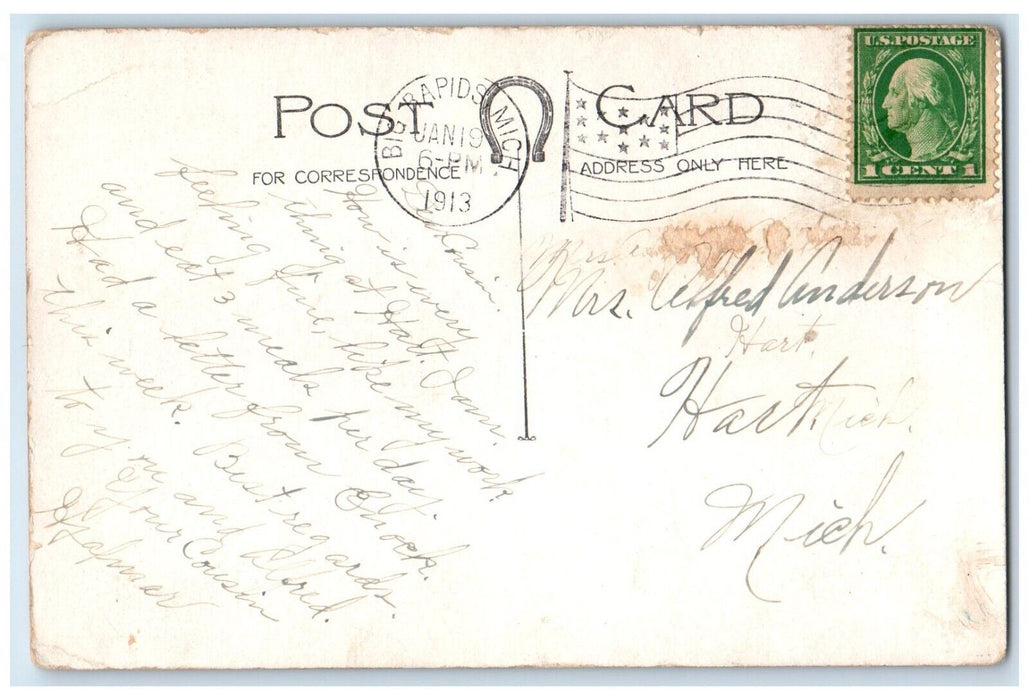 POST CARD
FOR CORRESPONDENCE
ADDRESS ONLY HERE
BIG RAPIDS MICH
JAN 19
6-PM
1913
U.S. POSTAGE
1 CENT 1
Cousin.
How is every
thing at Hart. I am
feeling fine, like my work
and eat 3 meals per day.
Had a letter from Chock.
this week. Best regards
to you and Alfred.
Your Cousin
Hjalmar
Mrs.
Mrs. Alfred Anderson
Hart.
Hart. Mich.
Mich.